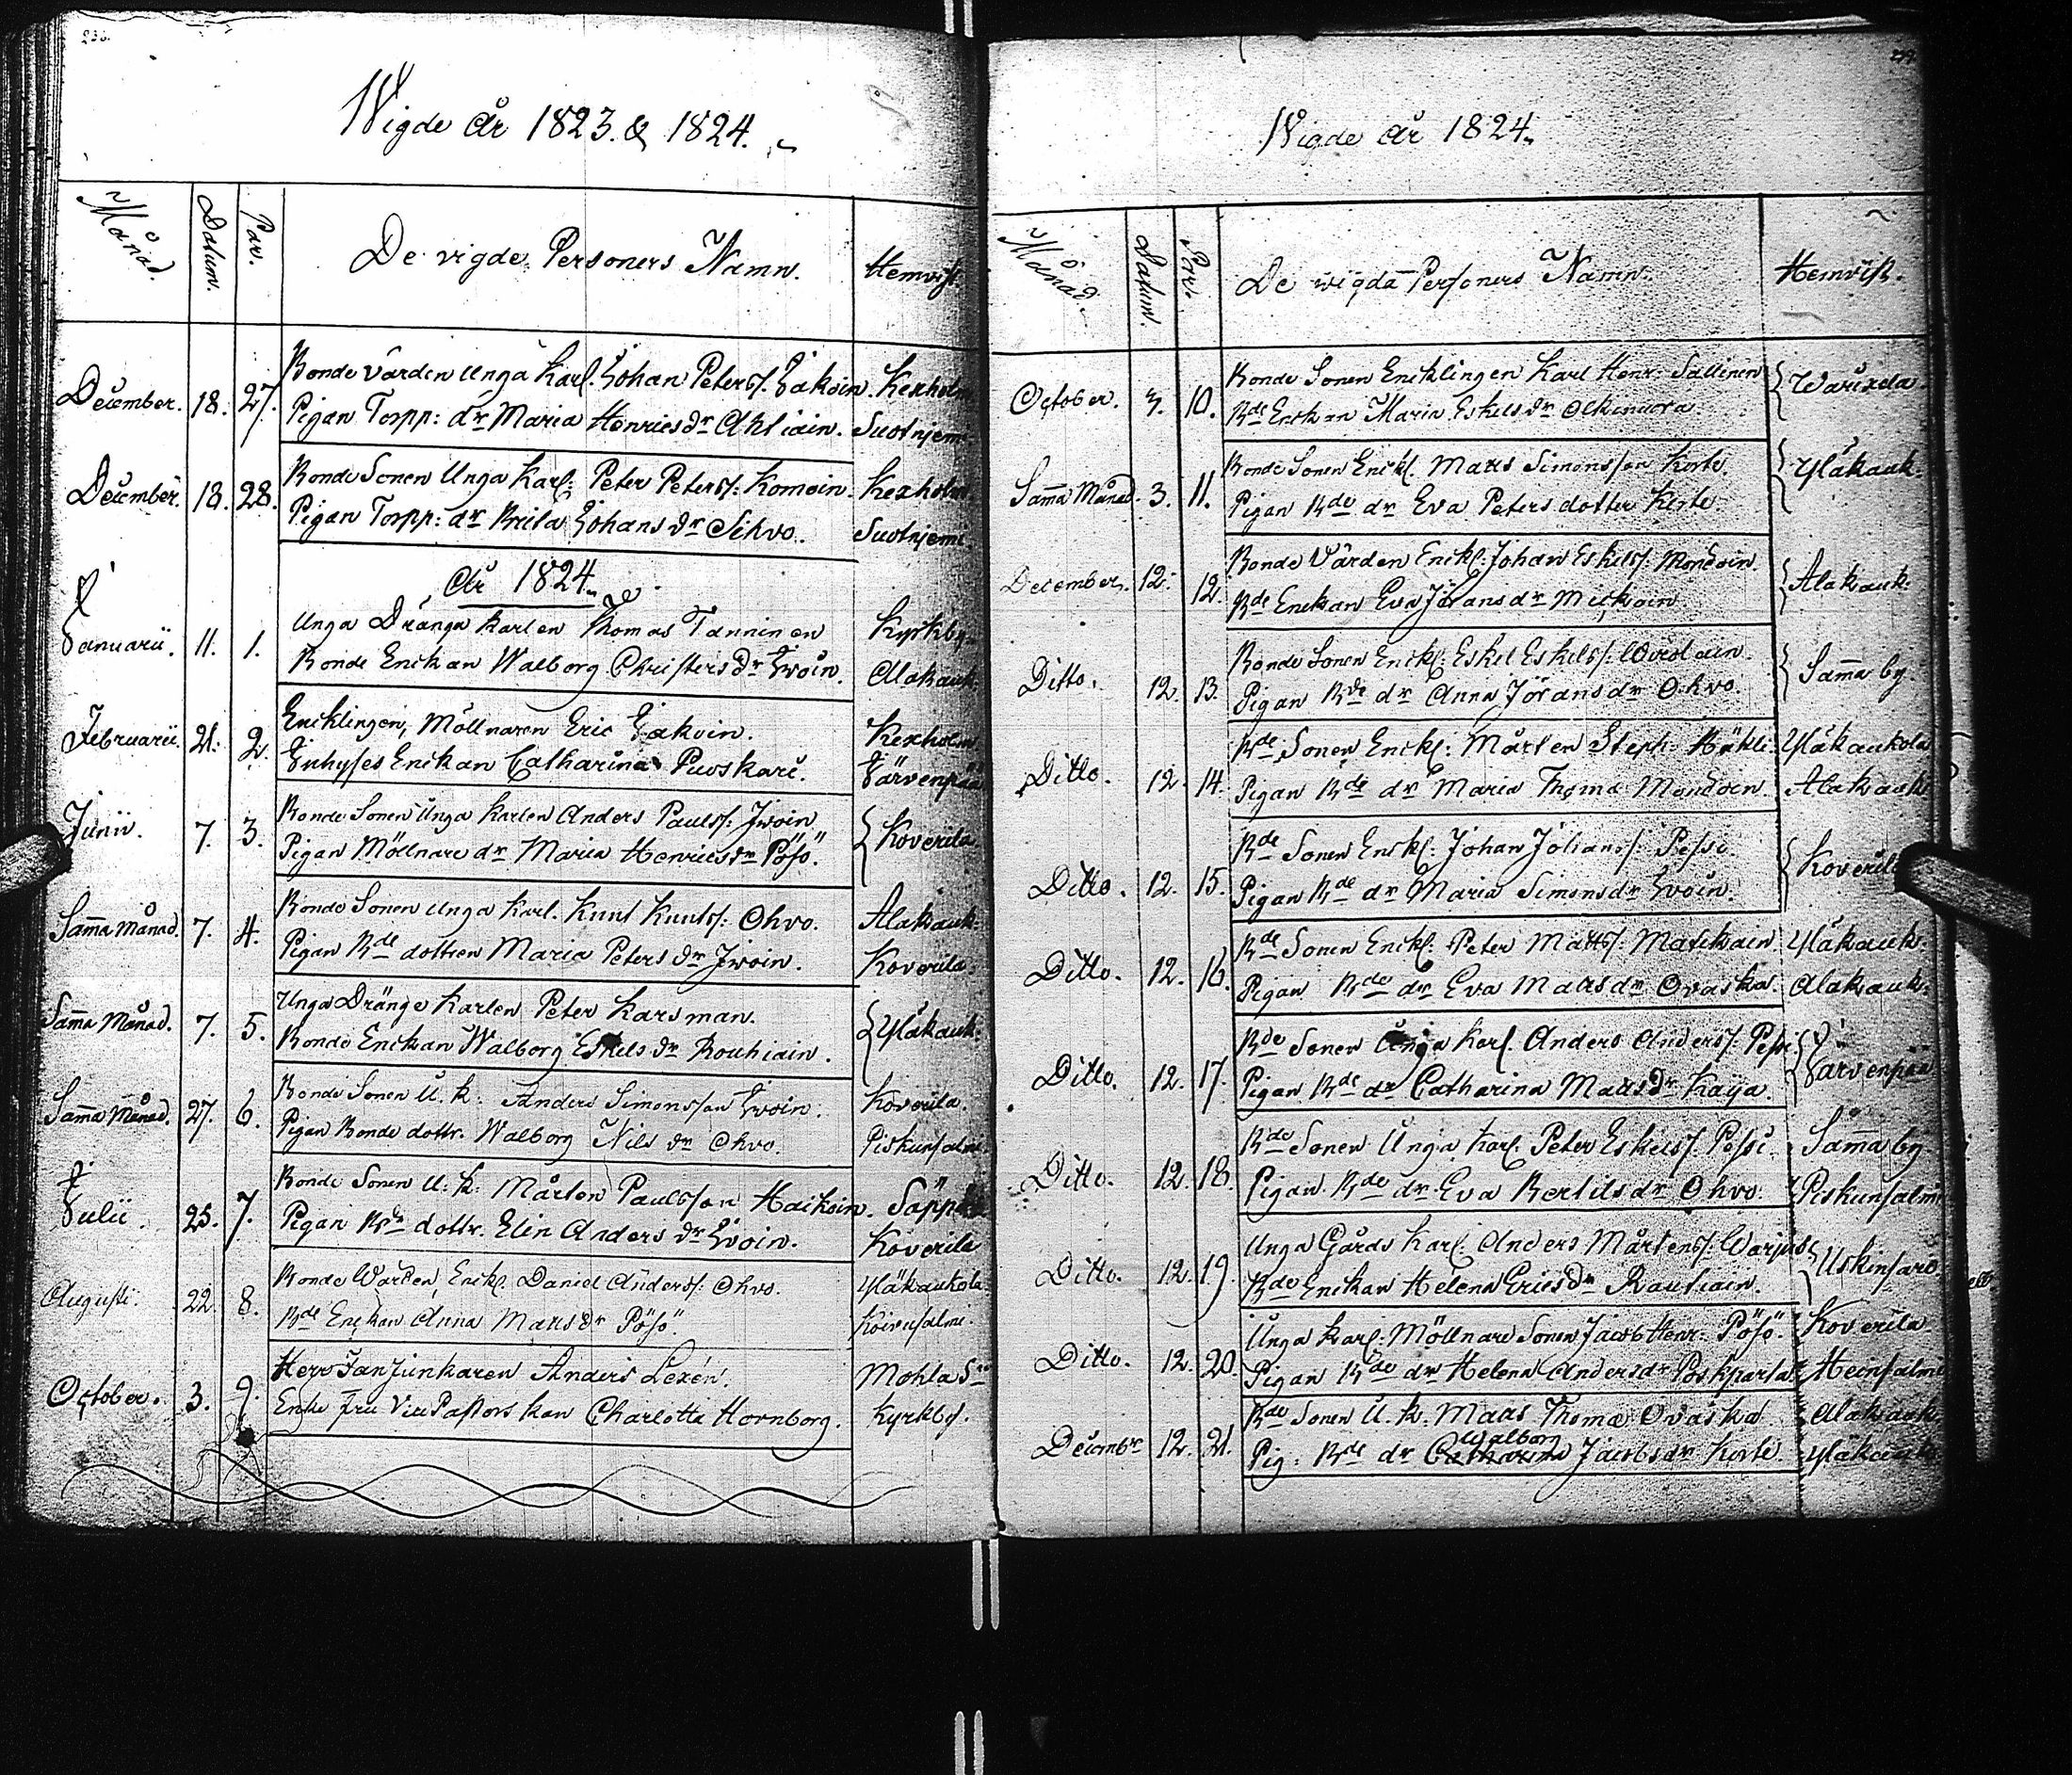 236.
Wigde år 1823. & 1824.
Månad. Datum. Par. De vigde Personers Namn. Hemvist
December. 18. 27. Bonde värden Unga Karl. Johan Peterss. Jakoin. Kexholm
Pigan Torpp: dr Maria Henricsdr Ahtiain. Suotnjemi
December. 18. 28. Bonde Sonen Unga Karl: Peter Peterss: Komoin. Kexholm
Pigan Torpp: dr Brita Johans dr Sihvo. Suotnjemi.
År 1824.
Januarii. 11. 1. Unga Dränge Karlen Thomas Tanninen Kyrkby
Bonde Enckan Walborg Christersdr Iwoin. Alakauk.
Februarii. 21. 2. Encklingen, Möllnaren Eric Jakoin. Kexholm
Inhyses Enckan Catharina Puoskari. Järvenpää
Junii. 7. 3. Bonde Sonen Unga Karlen Anders Paulss: Iwoin
Pigan Möllnare dr Maria Henricsdr Pösö. Koverila
Samma Månad. 7. 4. Bonde Sonen Unga Karl. Knut Knutss: Ohvo. Alakauk.
Pigan Bde dottren Maria Peters dr Iwoin. Koverila.
Samma Månad. 7. 5. Unga Dränge Karlen Peter Karsman.
Bonde Enckan Walborg Eskels dr Rouhiain. Yläkauk.
Samma Månad. 27. 6. Bonde Sonen U. K: Anders Simonsson Iwoin. Koverila.
Pigan Bonde dottr. Walborg Nils dr Ohvo. Piskunsalmi
Julii. 25. 7. Bonde Sonen U: K: Mårten Paulsson Haikoin.
Pigan Bde dottr. Elin Anders dr Iwoin. Koverila
Augusti. 22. 8. Bonde Warden, Enckl. Daniel Anderss: Ohvo. Yläkaukola
Bde Enckan Anna Mattsdr Pösö. Koivusalmi.
October. 3. 9. Herr Fanjunkaren Anders Lexén. Mohla Sn
Enke fru Vice Pastorskan Charlotta Hornborg. Kyrkby.
Wigde år 1824.
Månad. Datum. Par. De wigda Personers Namn. Hemvist.
October. 3. 10. Bonde Sonen Encklingen Karl Henr: Sallinen
Bde Enckan Maria Eskelsdr Olkinuora.
Samma Månad. 3. 11. Bonde Sonen Enckl. Matts Simonsson Korte. Yläkauk.
Pigan Bde dr Eva Peters dotter Korte.
December. 12. 12. Bonde Värden Enckl: Johan Eskelss: Mondoin. Alakauk.
Bde Enckan Eva Jörans dr Mickoin
Ditto. 12. 13. Bonde Sonen Enckl: Eskel Eskelss: Samma by.
Pigan Bde dr Anna Jörans dr Ohvo.
Ditto. 12. 14. Bde Sonen Enckl: Mårten Steph: Yläkaukola
Pigan Bde dr Maria Thomæ Mondoin. Alakauk
Ditto. 12. 15. Bde Sonen Enckl: Johan Johanss: Pessi. Koverila
Pigan Bde dr Maria Simonsdr Iwoin.
Ditto. 12. 16. Bde Sonen Enckl: Peter Mattss: Matikain Yläkauk.
Pigan Bde dr Eva Matts dr Ovaska. Alakauk.
Ditto. 12. 17. Bde Sonen Unga Karl. Anders Anderss. Pessi
Pigan Bde dr Catharina Mattsdr Kaija. Järvenpää
Ditto. 12. 18. Bde Sonen Unga Karl. Peter Eskelss. Pessi. Samma by
Pigan Bde dr Eva Bertils dr Ohvo. Piskunsalmi
Ditto. 12. 19. Unga Gårds Karl: Anders Mårtenss: Warpus Uskinsaro.
Bde Enckan Helena Ericsdr Rautiain.
Ditto. 12. 20. Unga Karl: Möllnare Sonen Jacob Henr: Pösö. Koverila
Pigan Bde dr Helena Andersdr Pöskparta Heinsalmi
Decembr 12. 21. Bde Sonen U. K: Matts Thomæ Ovaska Alakauk
Pig: Bde dr Walborg Jacobsdr Korte. Yläkauk